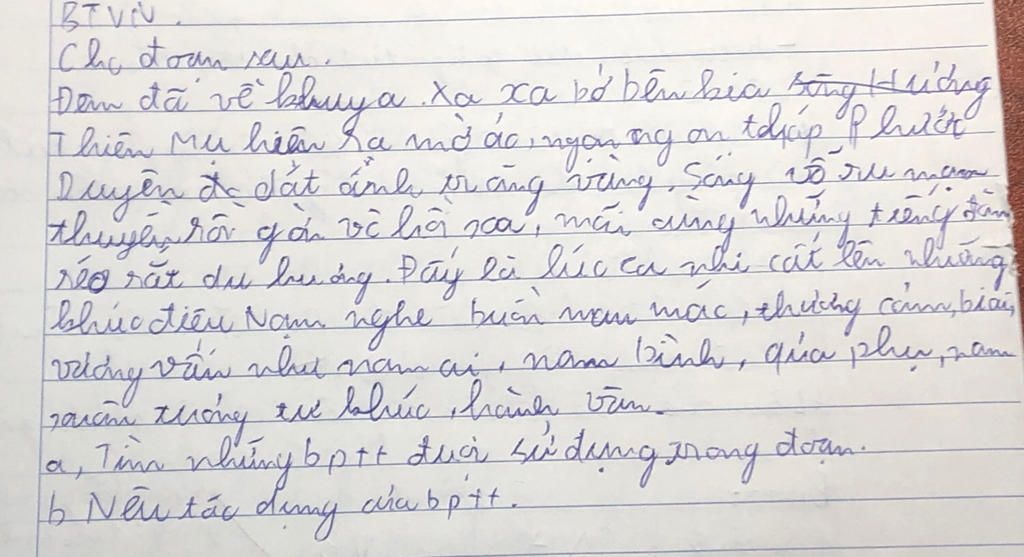 BTVN.
Cho đoạn sau.
Đêm đã về khuya. Xa xa bờ bên kia sông Hương
Thiên Mụ hiện ra mờ ảo, ngọn ngọn tháp Phước
Duyên dát ánh trăng vàng. Sóng vỗ ru mạn
thuyền rồi gợn vô hồi xa, mãi cùng những tiếng đàn
réo rắt du dương. Đấy là lúc ca nhi cất lên những
khúc điệu Nam nghe buồn man mác, thương cảm, bi ai,
vương vấn như nam ai, nam bình, quả phụ, nam
xuân tương tư khúc, hành vân.
a, Tìm những bptt được sử dụng trong đoạn.
b Nêu tác dụng của bptt.